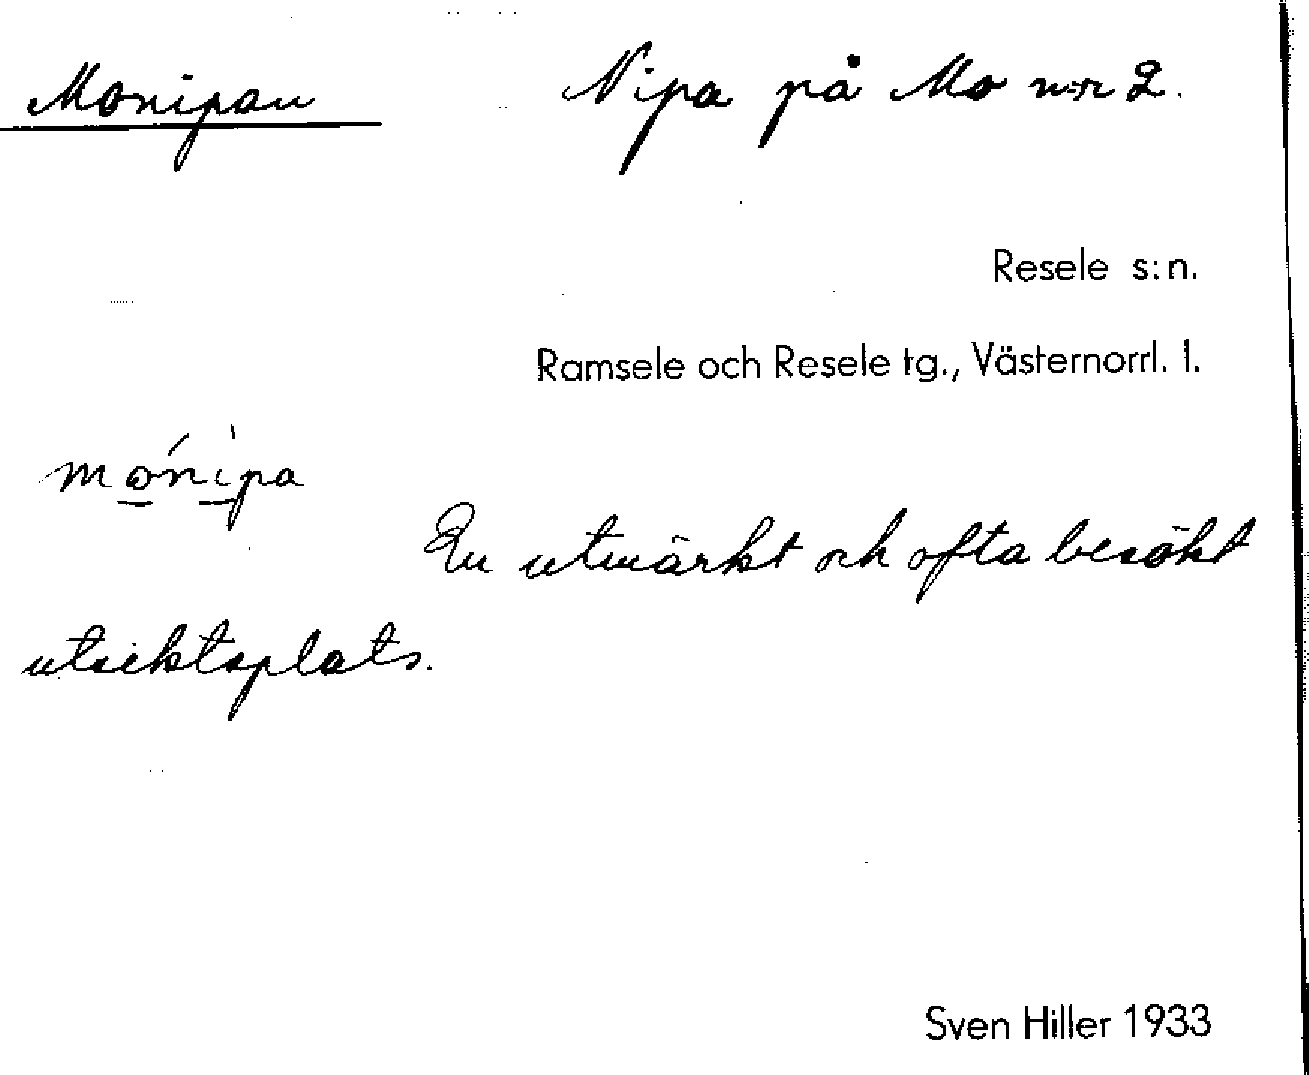 Monipan
Nipa på Mo n:r 2.
Resele s:n.
Ramsele och Resele tg., Västernorrl. l.
mónìpa
En utmärkt och ofta besökt
utsiktsplats.
Sven Hiller 1933